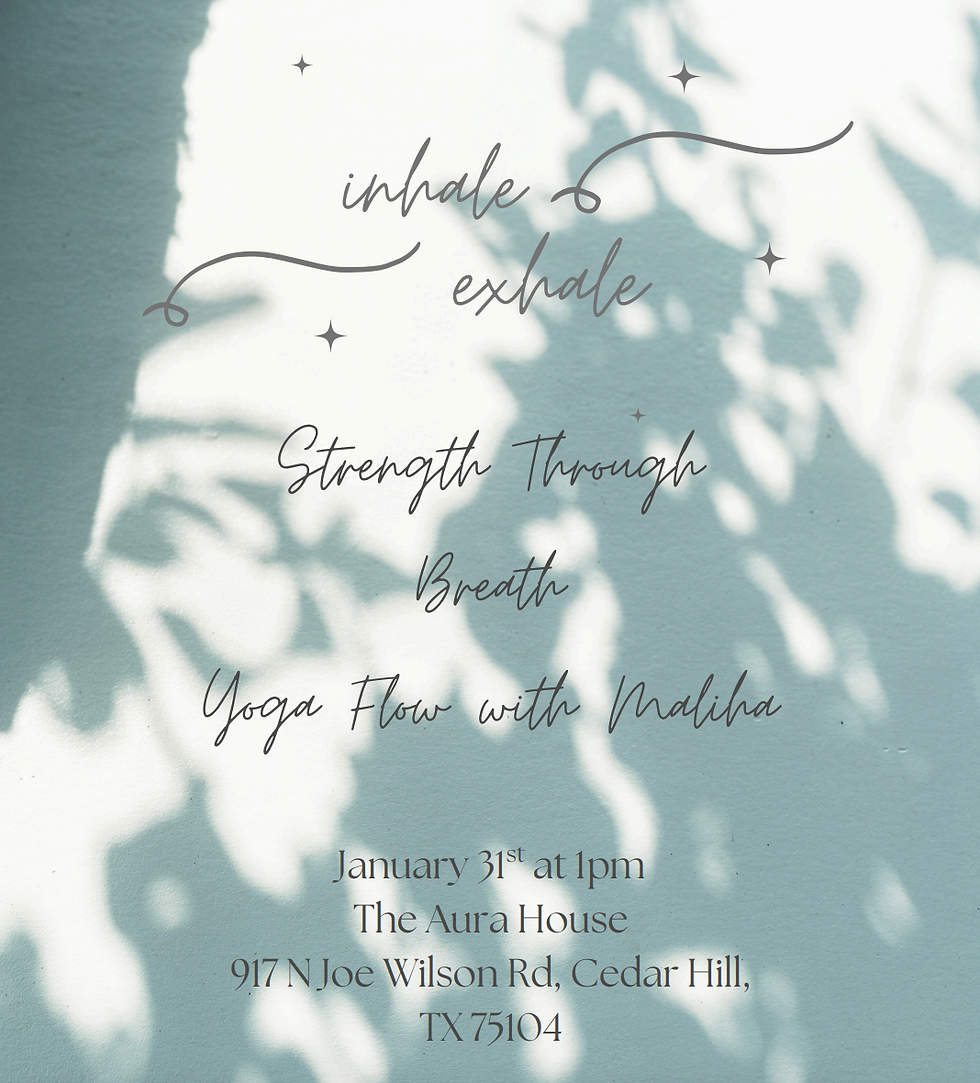 inhale
exhale
Strength Through
Breath
Yoga Flow with Maliha
January 31st at 1pm
The Aura House
917 N Joe Wilson Rd, Cedar Hill,
TX 75104